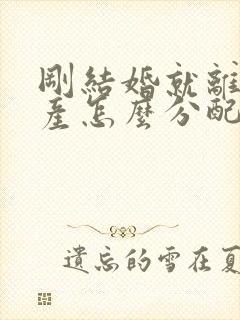 剛結婚就離
產怎麼分配
遺忘的雪在夏